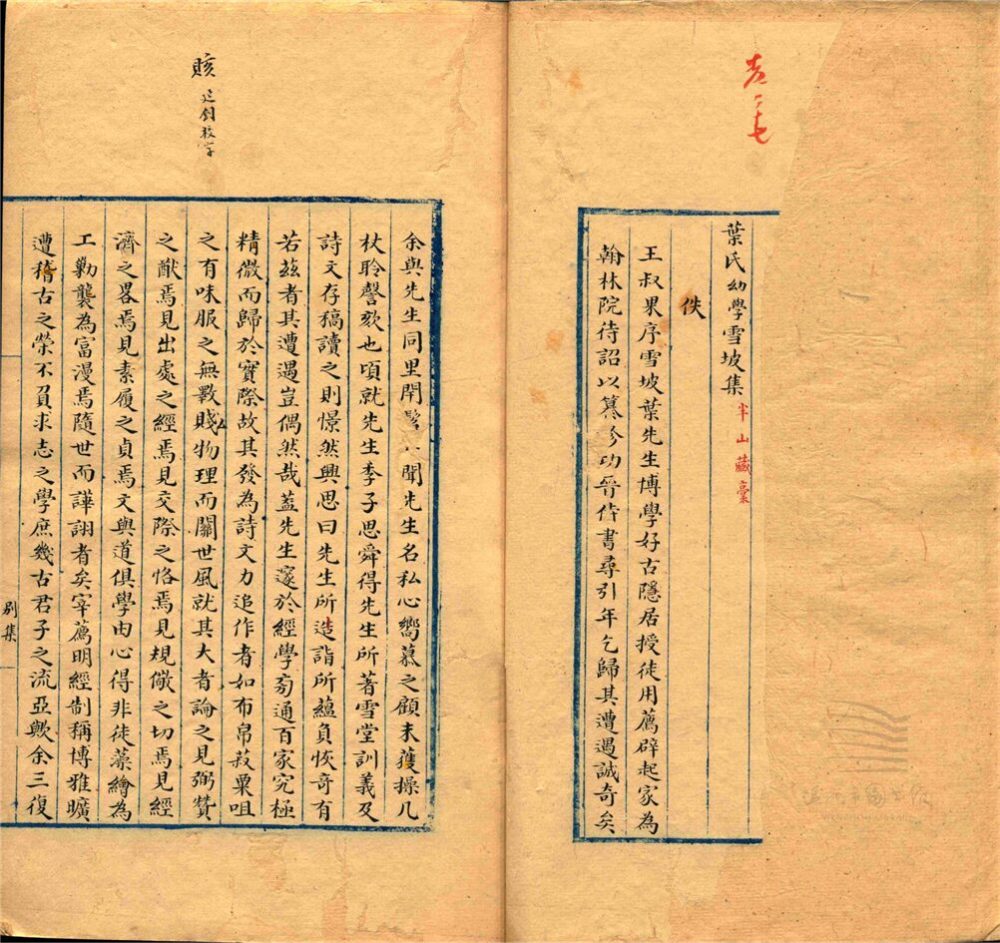 葉氏幼學雪坡集半山藏稾
佚
王叔果序雪坡葉先生博學好古隱居授徒用薦辟起家為
翰林院待詔以纂修功晉侍書尋引年乞歸其遭遇誠奇矣
余與先生同里閈髫聞先生名私心嚮慕之顧未獲操几
杖聆謦欬也頃就先生季子思舜得先生所著雪堂訓義及
詩文存稿讀之則憬然興思曰先生所造詣所蘊負恢奇有
若茲者其遭遇豈偶然哉蓋先生邃於經學旁通百家究極
精微而歸於實際故其發為詩文力追作者如布帛菽粟咀
之有味服之無斁賤物理而關世風就其大者論之見弼贊
之猷焉見出處之經焉見交際之恪焉見規儆之切焉見經
濟之畧焉見素履之貞焉文與道俱學由心得非徒藻繪為
工勦襲為富漫焉隨世而譁詡者矣宰薦明經制稱博雅曠
遭稽古之榮不負求志之學庶幾古君子之流亞歟余三復
別集